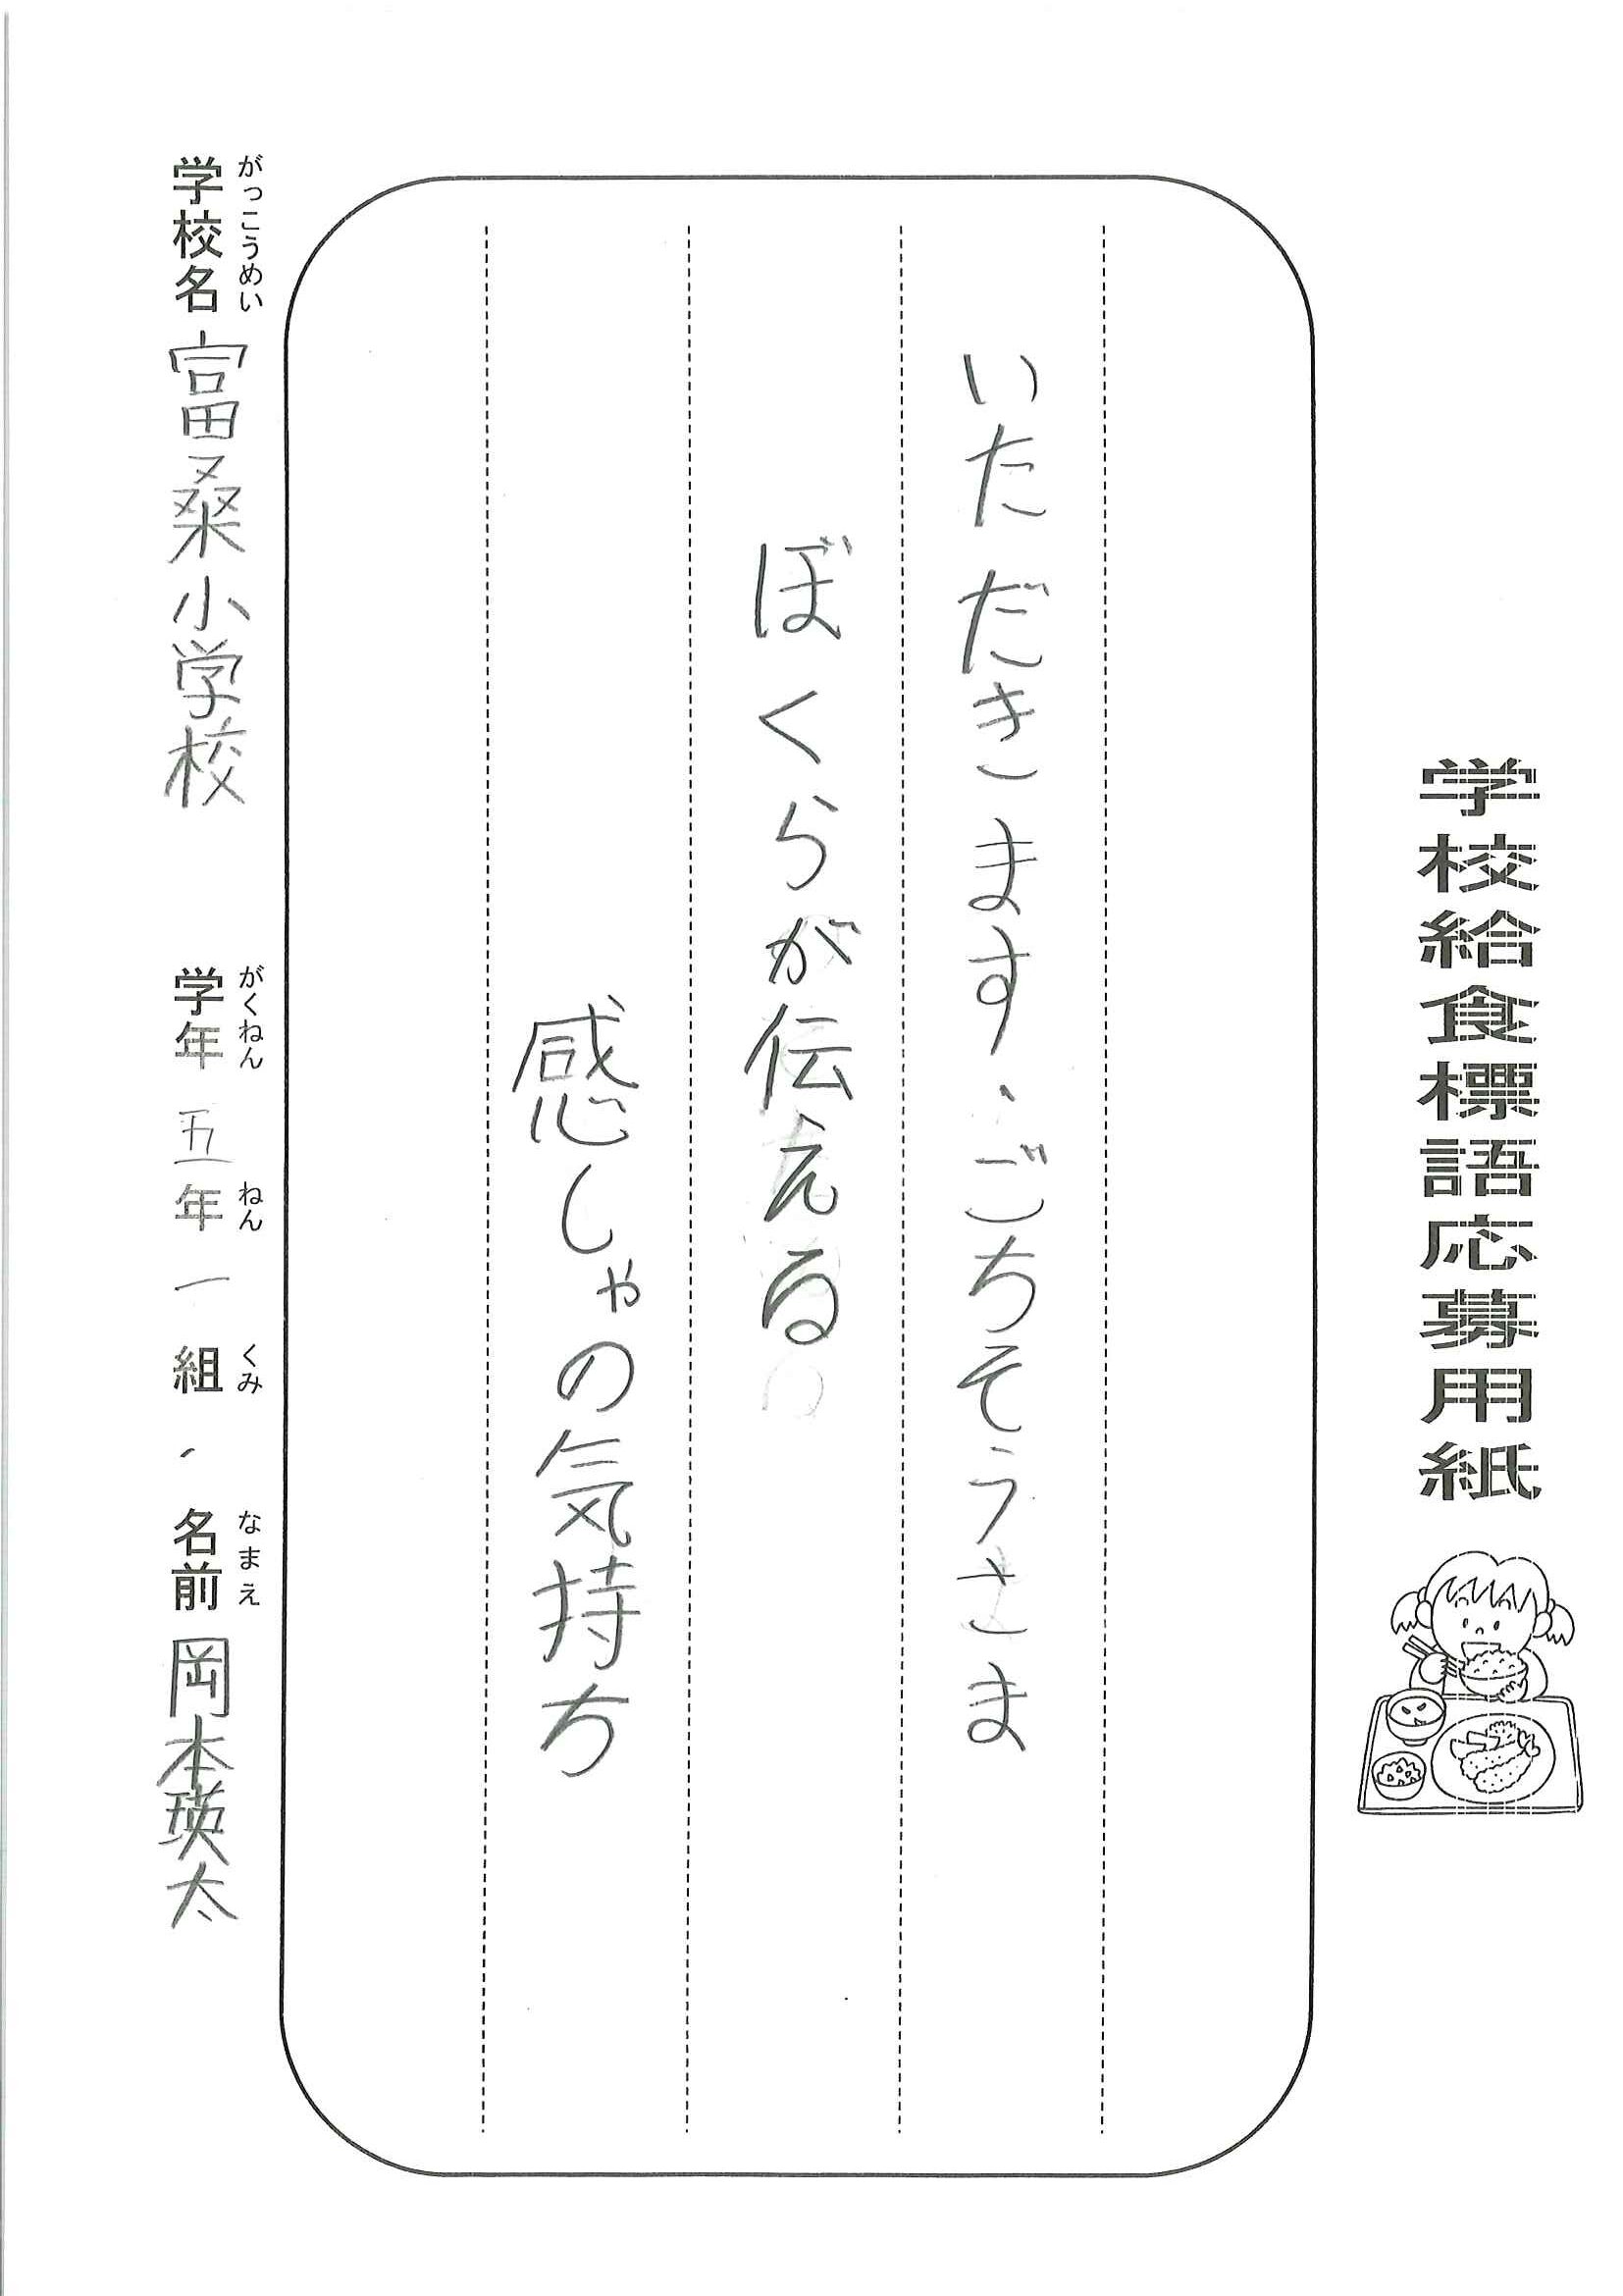 学校給食標語応募用紙
いただきます・ごちそうさま
ぼくらが伝える
感しゃの気持ち
がっこうめい がくねん ねん くみ なまえ
学校名 富桑小学校 学年 五年 一組 名前 岡本瑛太